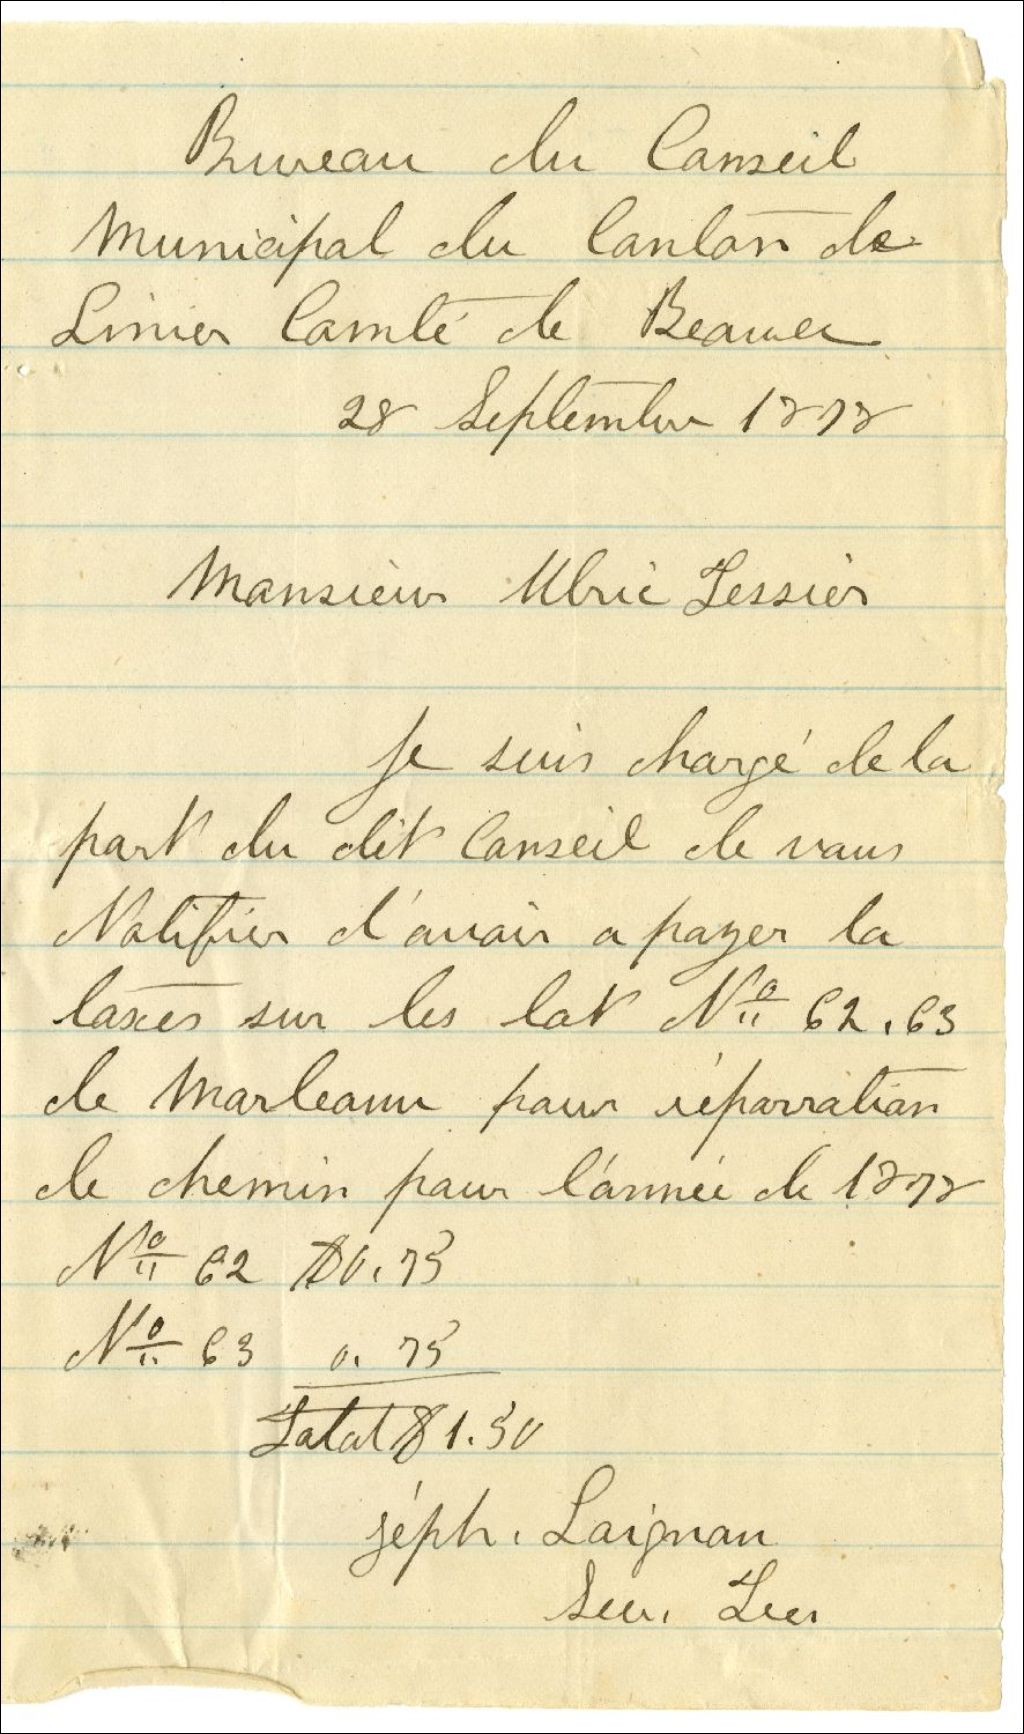 Bureau du Conseil
Municipal du Canton de
Linier Comté de Beauce
28 Septembre 1878
Monsieur Ulric Tessier
Je suis chargé de la
part du dit Conseil de vous
Notifier d'avoir a payer la
taxes sur les lot No 62. 63
de Marleau pour réparration
de chemin pour l'année de 1878
No 62 $0.75
No 63 0.75
Total $1.50
jéph. Loignon
Sec. Tres